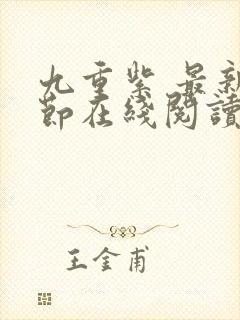 九重紫 最新
節在綫閱讀
王金甫